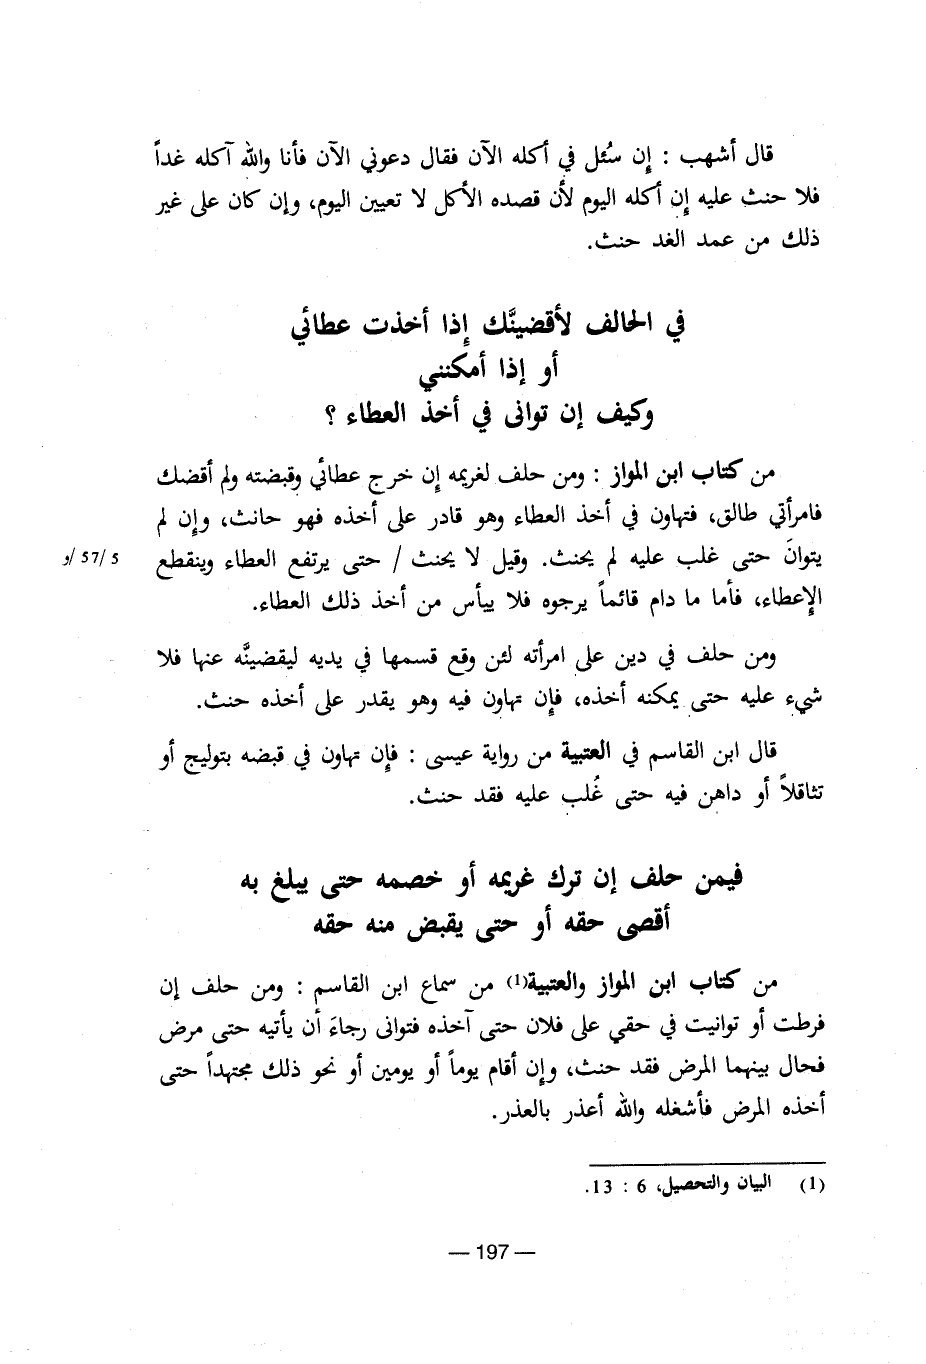 قال أشهب : إِن سُئل في أكله الآن فقال دعوني الآن فأنا والله آكله غداً
فلا حنث عليه إِن أكله اليوم لأن قصده الأكل لا تعيين اليوم، وإن كان على غير
ذلك من عمد الغد حنث.
في الحالف لأقضينَّك إِذا أخذت عطائي
أو إذا أمكنني
وكيف إن توانى في أخذ العطاء ؟
من كتاب ابن المواز : ومن حلف لغريمه إن خرج عطائي وقبضته ولم أقضك
فامرأتي طالق، فتهاون في أخذ العطاء وهو قادر على أخذه فهو حانث، وإن لم
يتوانَ حتى غلب عليه لم يحنث. وقيل لا يحنث / حتى يرتفع العطاء وينقطع
5 /57 /و
الإعطاء، فأما ما دام قائماً يرجوه فلا ييأس من أخذ ذلك العطاء.
ومن حلف في دين على امرأته لئن وقع قسمها في يديه ليقضينَّه عنها فلا
شيء عليه حتى يمكنه أخذه، فإن تهاون فيه وهو يقدر على أخذه حنث.
قال ابن القاسم في العتبية من رواية عيسى : فإن تهاون في قبضه بتوليج أو
تثاقلاً أو داهن فيه حتى غُلب عليه فقد حنث.
فيمن حلف إن ترك غريمه أو خصمه حتى يبلغ به
أقصى حقه أو حتى يقبض منه حقه
من كتاب ابن المواز والعتبية(1) من سماع ابن القاسم : ومن حلف إن
فرطت أو توانيت في حقي على فلان حتى آخذه فتوانى رجاءَ أن يأتيه حتى مرض
فحال بينهما المرض فقد حنث، وإن أقام يوماً أو يومين أو نحو ذلك مجتهداً حتى
أخذه المرض فأشغله والله أعذر بالعذر.
(1) البيان والتحصيل، 6 : 13.
— 197 —